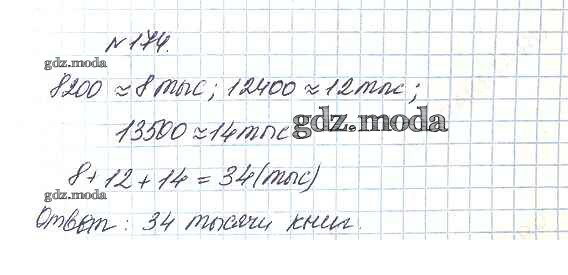 №174.
gdz.moda
8200 ≈ 8 тыс; 12400 ≈ 12 тыс;
13500 ≈ 14 тыс gdz.moda
8 + 12 + 14 = 34 (тыс)
gdz.moda
Ответ: 34 тысячи книг.